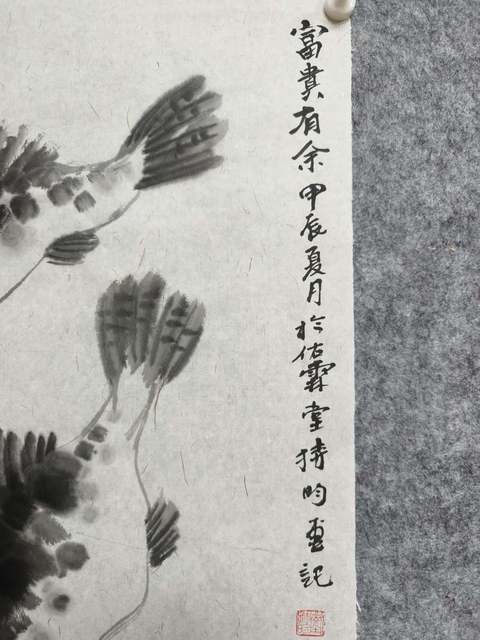 富貴有余甲辰夏月於佑霖堂 昀畫記